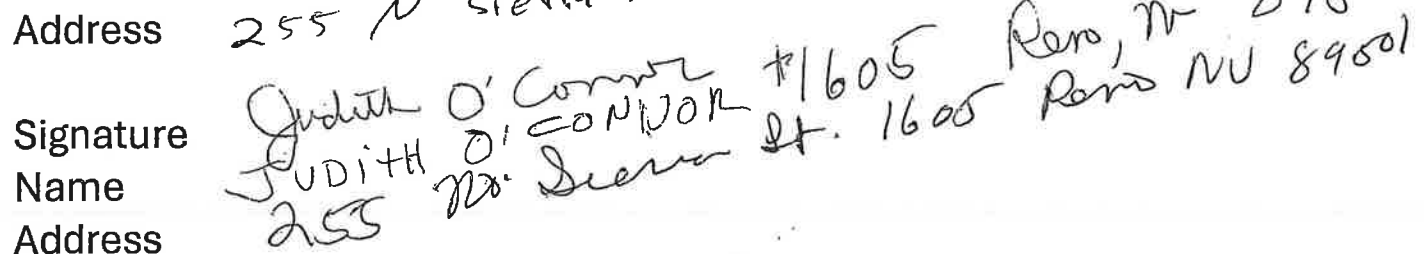 Address 255 N Sierra
Signature Judith O'Connor #1605 Reno, NV
Name JUDITH O'CONNOR
Address 255 No. Sierra St. 1605 Reno NV 89501